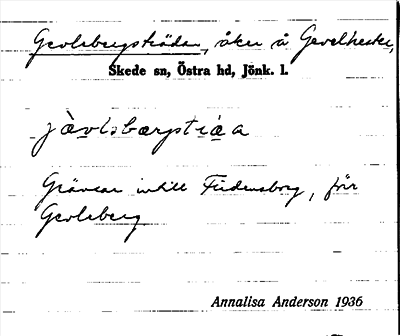 Gevlsbergsträdan, åker å Gevelhester,
Skede sn, Östra hd, Jönk. l.
jàvlsbærpstràa
Gränsar intill Fridensborg, förr
Gevlsberg
Annalisa Anderson 1936